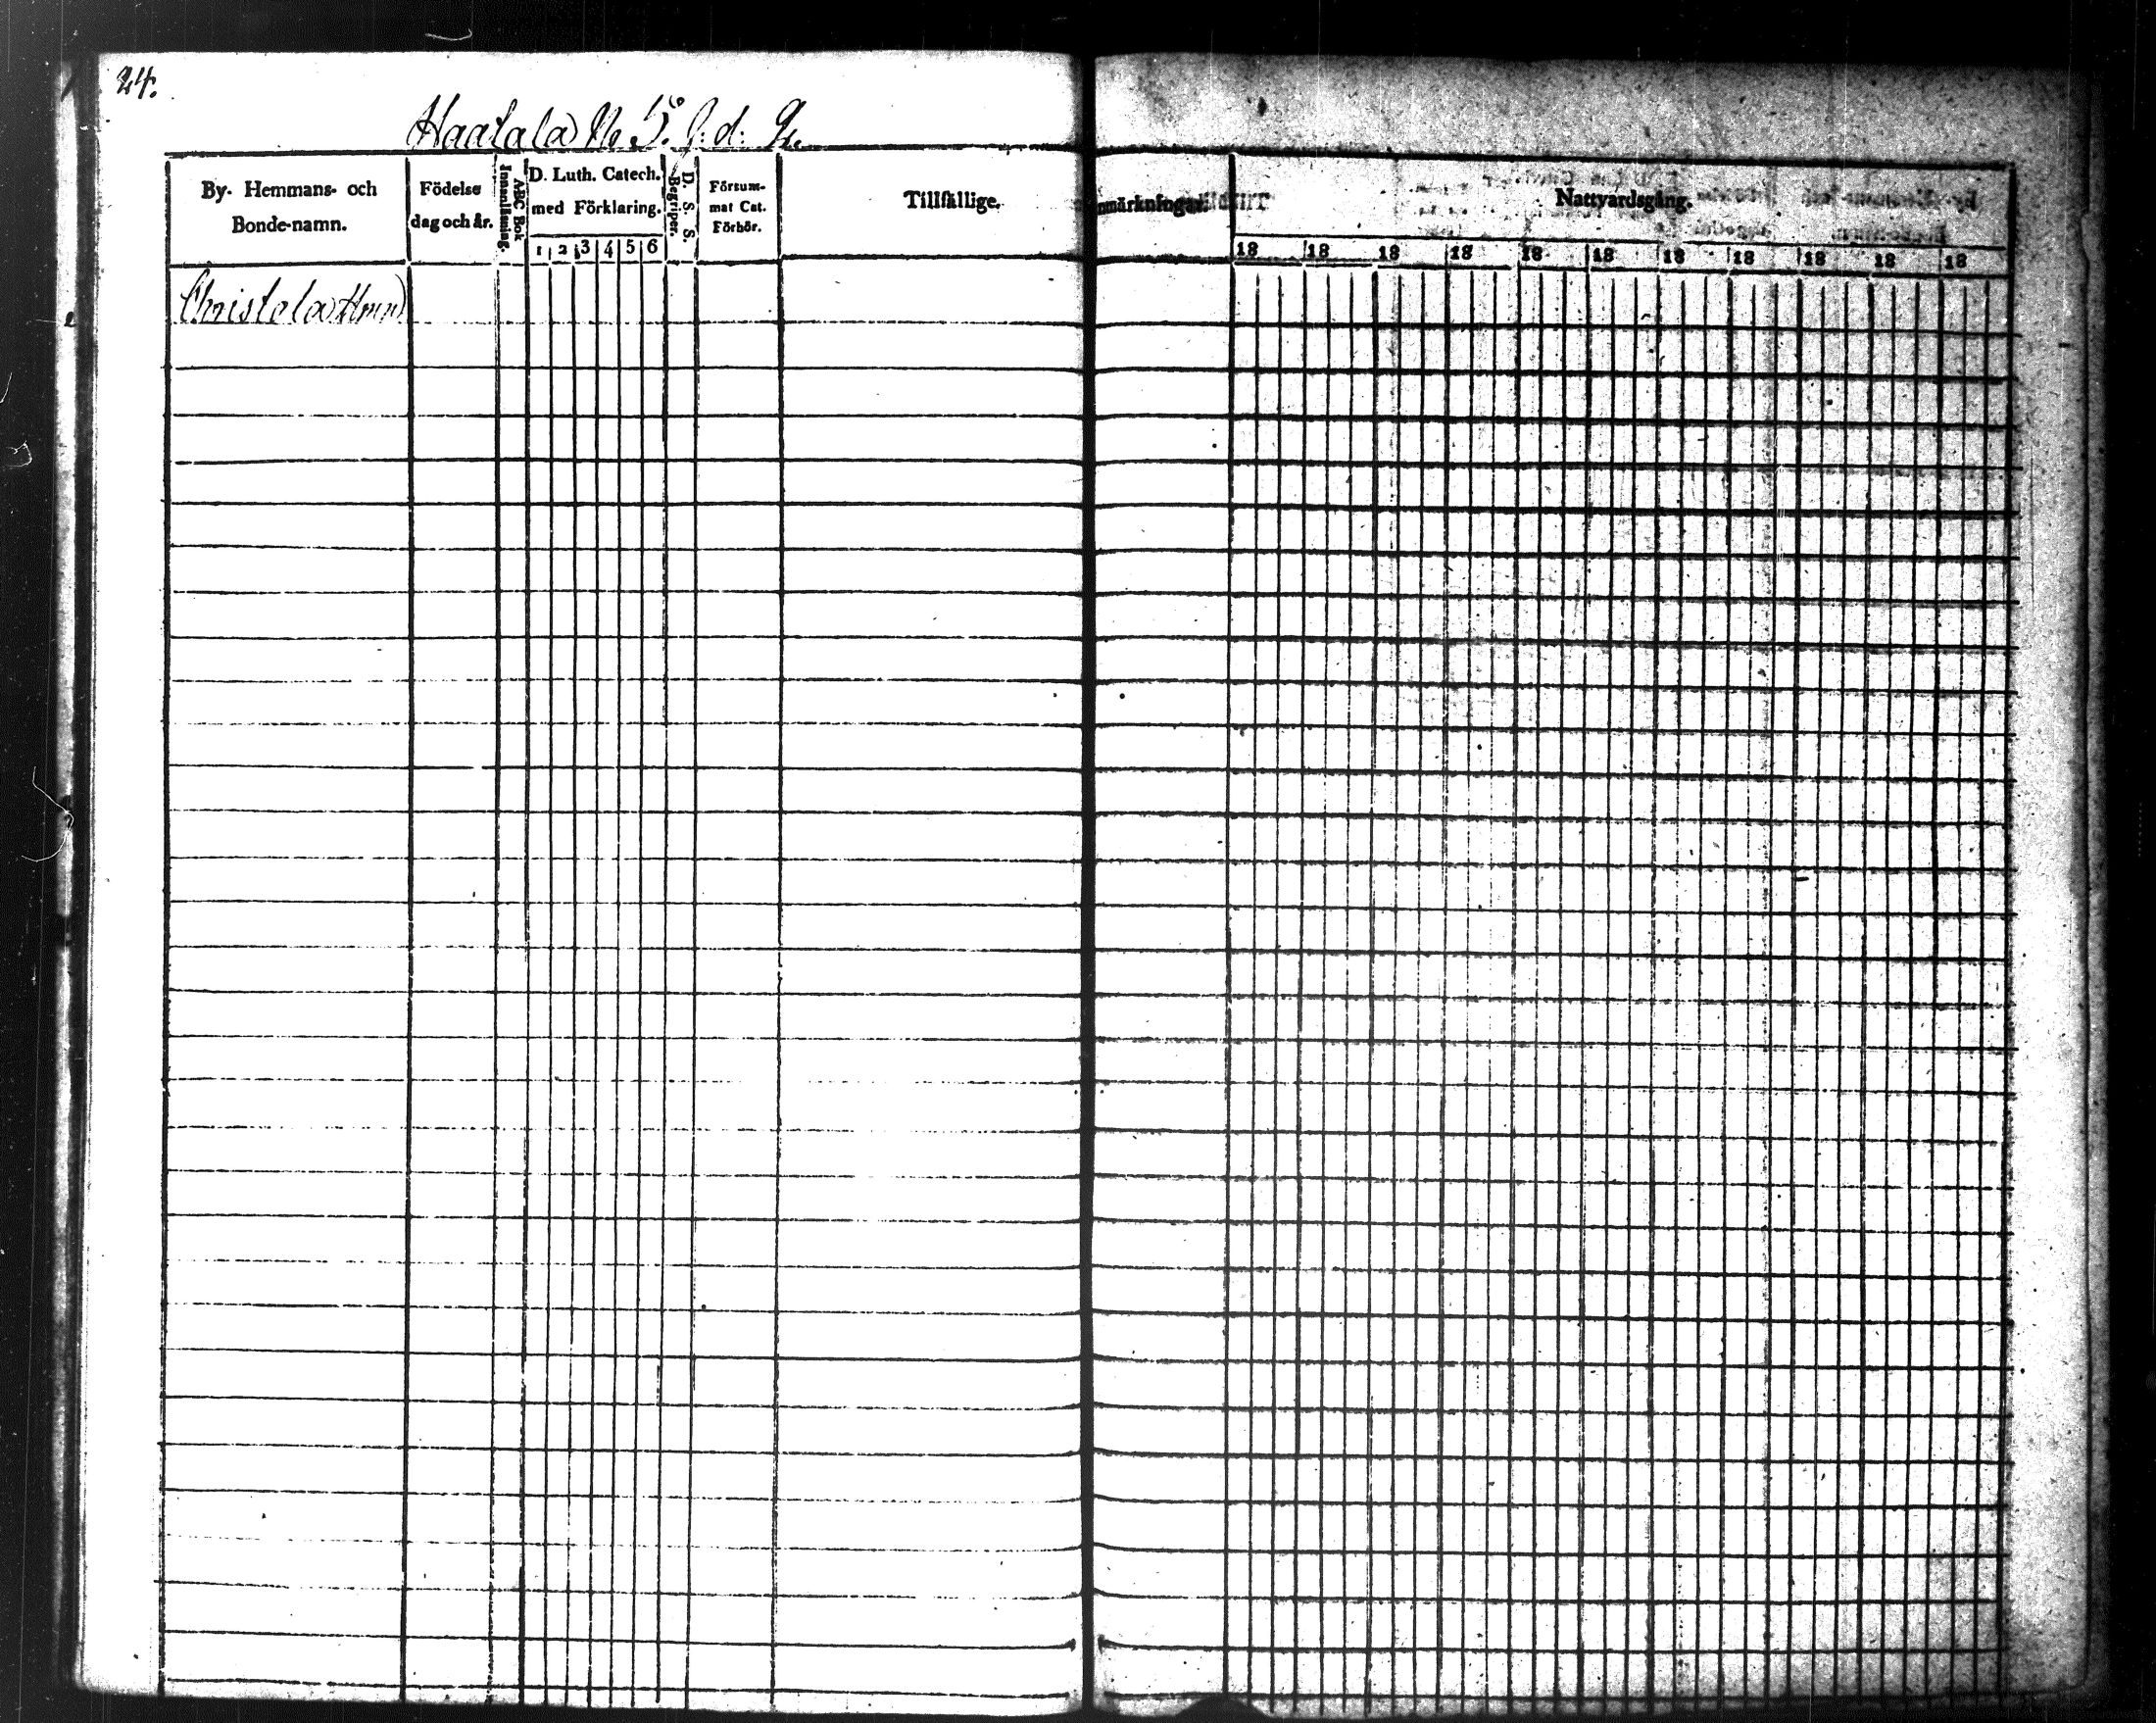 24.
Haatala No 5.
By- Hemmans- och Bonde-namn.
Födelse dag och år.
ABC Bok
Innanläsning.
D. Luth. Catech. med Förklaring.
1 2 3 4 5 6
D. S. S.
Begriper.
Försummat Cat. Förhör.
Tillfällige.
nmärkningar.
Nattvardsgång.
18 18 18 18 18 18 18 18 18 18 18
Christola Hmn